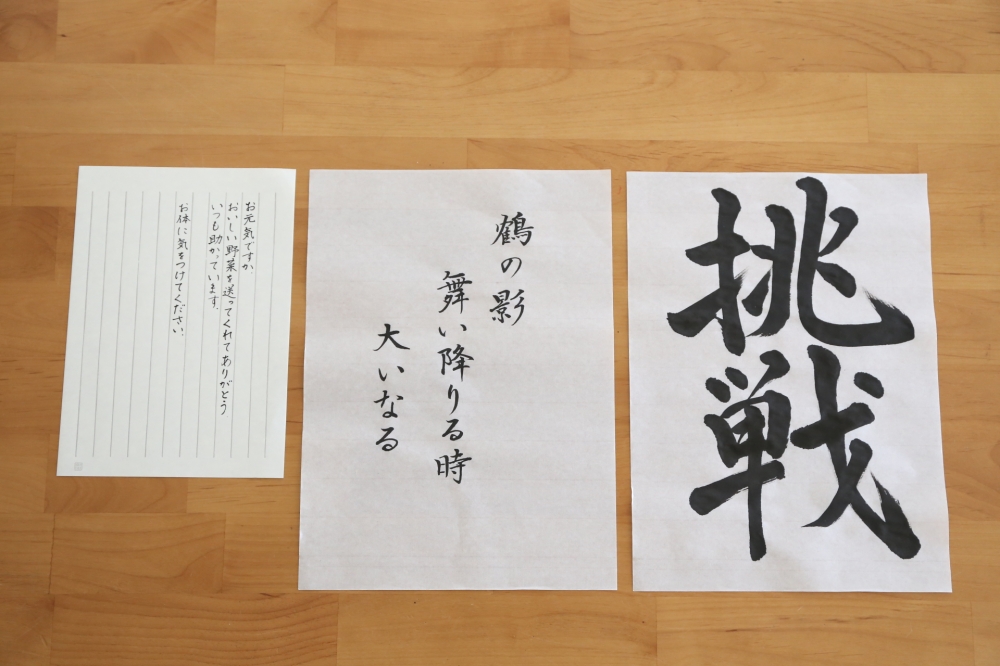 お元気ですか
おいしい野菜を送ってくれてありがとう
いつも助かっています。
お体に気をつけてください。
鶴の影
舞い降りる時
大いなる
挑戦